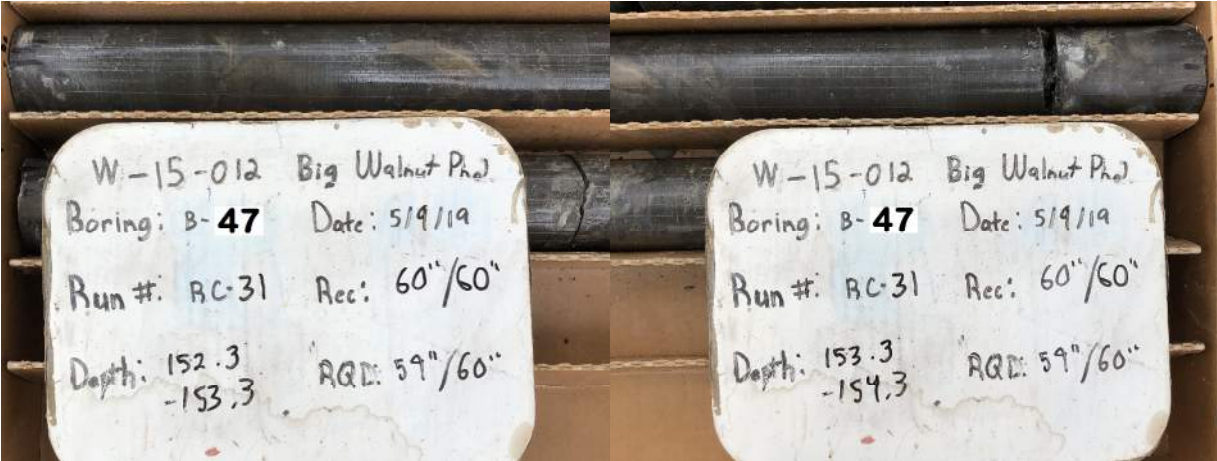 W-15-012 Big Walnut Ph2
Boring: B-47 Date: 5/9/19
Run #: RC-31 Rec: 60"/60"
Depth: 152.3 RQD: 59"/60"
-153.3
W-15-012 Big Walnut Ph2
Boring: B-47 Date: 5/9/19
Run #: RC-31 Rec: 60"/60"
Depth: 153.3 RQD: 59"/60"
-154.3